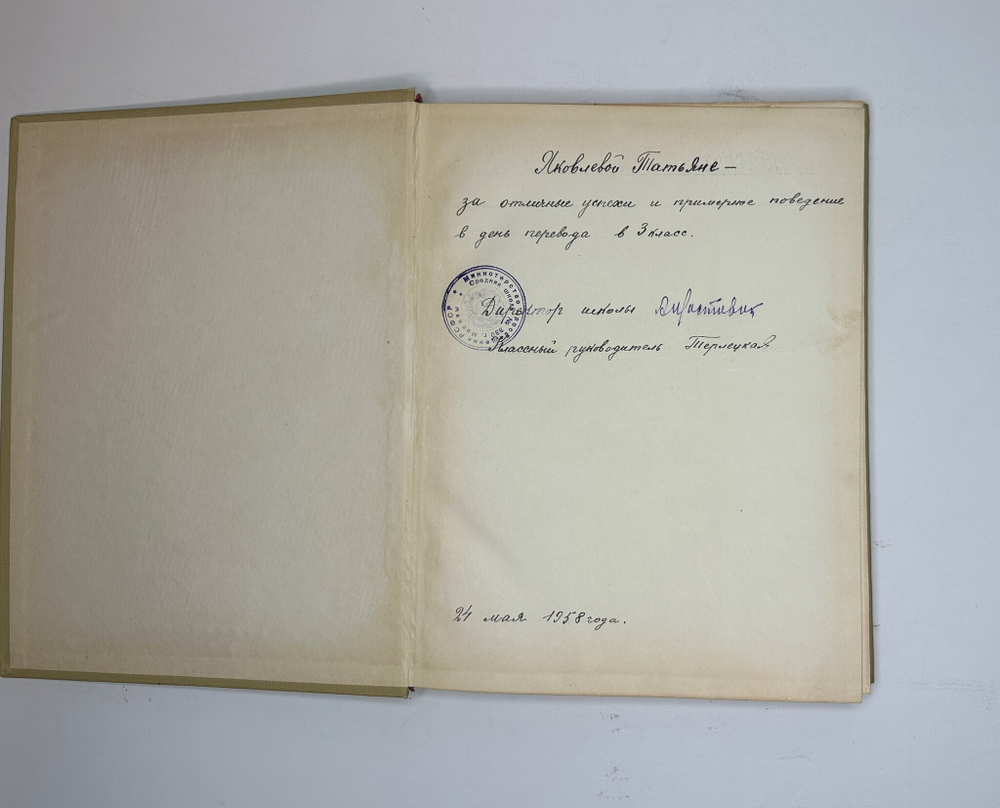 Яковлевой Татьяне —
за отличные успехи и примерное поведение
в день перевода в 3 класс.
Министерство просвещения РСФСР
Средняя школа № г. Москва
Директор школы
Классный руководитель Терлецкая
24 мая 1958 года.